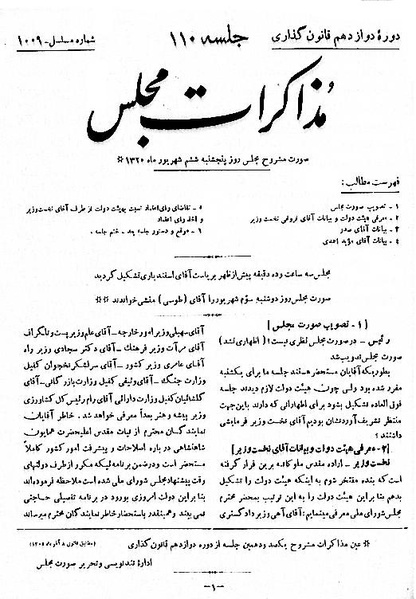 دورهٔ دوازدهم قانون گذاری
جلسه ۱۱۰
شماره مسلسل - ۱۰۰۹
مذاکرات مجلس
صورت مشروح مجلس روز پنجشنبه ششم شهریور ماه ۱۳۲۰ *
فهرست مطالب:
۱ - تصویب صورت مجلس
۲ - معرفی هیئت دولت و بیانات آقای فروغی نخست وزیر
۳ - بیانات آقای صدر
۴ - بیانات آقای مؤید احمدی
۵ - تقاضای رأی اعتماد نسبت بهیئت دولت از طرف آقای نخست وزیر
و اخذ رأی اعتماد
۶ - موقع و دستور جلسه بعد - ختم جلسه.
مجلس سه ساعت و ده دقیقه پیش از ظهر بریاست آقای اسفندیاری تشکیل گردید
صورت مجلس روز دوشنبه سوم شهریور را آقای (طوسی) منشی خواندند
[۱ - تصویب صورت مجلس]
رئیس - در صورت مجلس نظری نیست؟ (اظهاری نشد)
صورت مجلس تصویب شد
بطوریکه آقایان مستحضرند جلسه ما برای یکشنبه
مقرر شده بود ولی چون هیئت دولت لازم دیدند جلسه
فوق العاده تشکیل بشود برای اظهاراتی که دارند باین جهت
منتظر تشریف آوردنشان بودیم آقای نخست وزیر فرمایشی
داشتند؟
[۲ - معرفی هیئت دولت و بیانات آقای نخست وزیر]
نخست وزیر - اراده مقدس ملوکانه براین قرار گرفته
است که بنده مفتخر شوم به اینکه هیئت دولت را تشکیل
بدهم بنا بر این هیئت دولت را به این ترتیب بمحضر محترم
مجلس شورای ملی معرفی مینمایم: آقای آهی وزیر دادگستری
آقای سهیلی وزیر امور خارجه - آقای علم وزیر پست و تلگراف
آقای مرآت وزیر فرهنگ - آقای دکتر سجادی وزیر راه
آقای عامری وزیر کشور - آقای سرلشکر نخجوان کفیل
وزارت جنگ - آقای وثیقی کفیل وزارت بازرگانی - آقای
گلشائیان کفیل وزارت دارائی آقای رام رئیس کل کشاورزی
وزیر پیشه و هنر بعداً معرفی خواهد شد. خاطر آقایان
نمایندگان محترم از نیات مقدس اعلیحضرت همایون
شاهنشاهی در باره اصلاحات و پیشرفت امور کشور کاملاً
مستحضر است و در ضمن برنامه‌هائیکه مکرر از طرف دولتهای
وقت پیشنهاد مجلس شورای ملی شده است ملاحظه فرموده‌اند
بنا بر این دولت امروزی بورود در برنامه تفصیلی حاجتی
نمی بیند و همینقدر باستحضار خاطر نمایندگان محترم میرساند
* عین مذاکرات مشروح یکصد و دهمین جلسه از دوره دوازدهم قانون گذاری
(مطابق قانون ۸ آذر ماه ۱۳۰۵)
اداره تندنویسی و تحریر صورت مجلس
- ۱ -